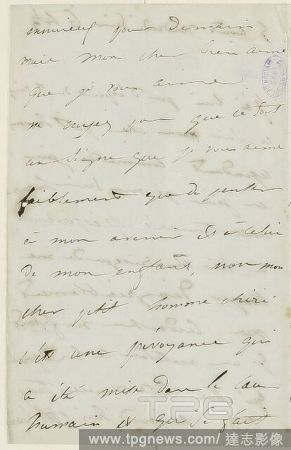 ennuieux pour demain
mais mon cher bien aimé
que je vous aime
ne croyez pas que ce soit
un signe que je vous aime
faiblement que de penser
à mon avenir et à celui
de mon enfant, non mon
cher petit homme chéri
c'est une prévoyance qui
a été mise dans le cœur
humain et qui fait
TPG
www.tpgnews.com / 達志影像